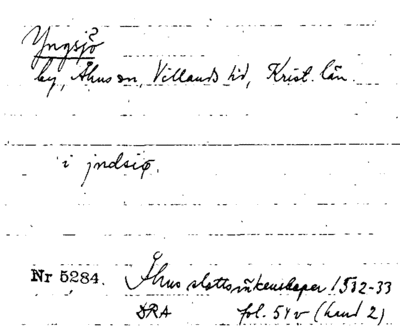 Yngsjö
by, Åhus sn, Villands hd, Krist. län.
i jndsiø.
Nr 5284. Åhus slottsräkenskaper 1532-33
DRA fol. 54v (hand 2)